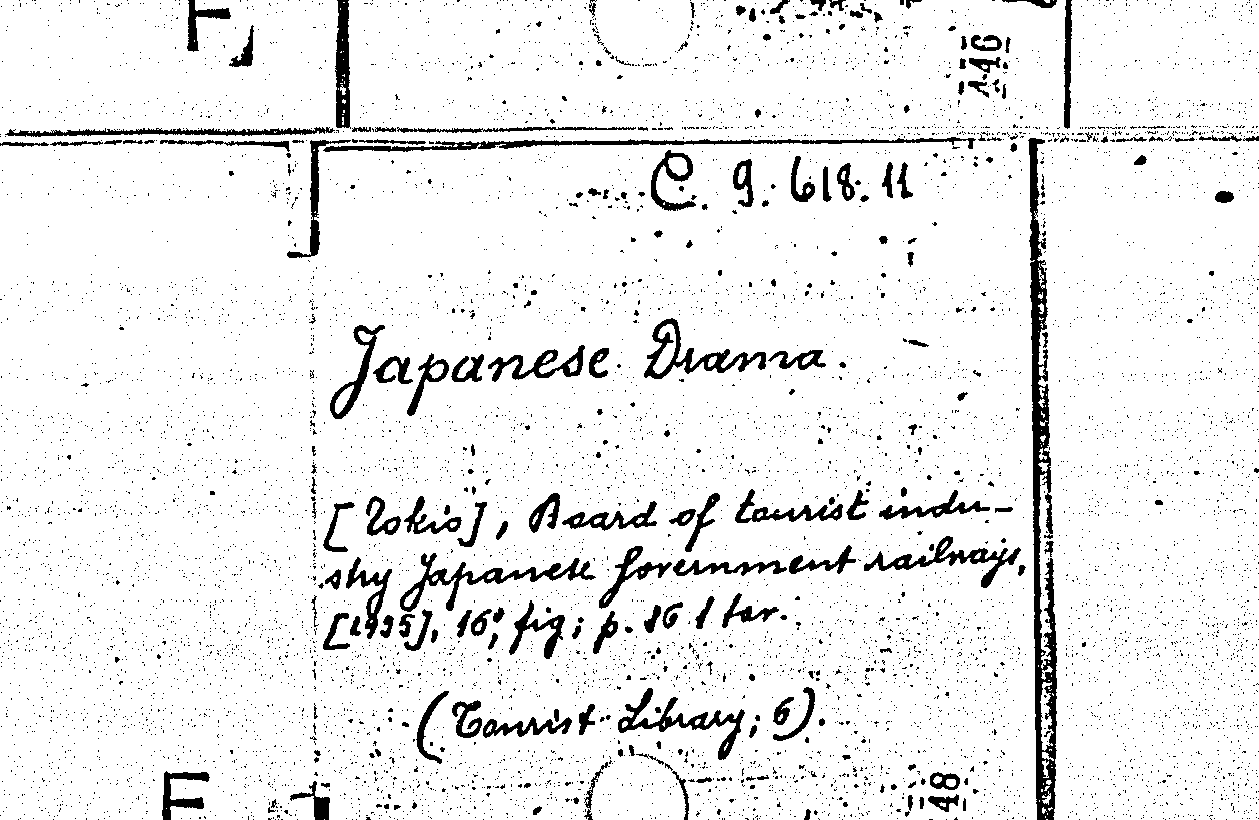 A46
C. 9. 618. 11
Japanese Drama.
[Tokio], Board of tourist indu-
stry Japanese Government railways,
[1935], 16°, fig; p. 86 1 tav.
(Tourist Library, 6).
48